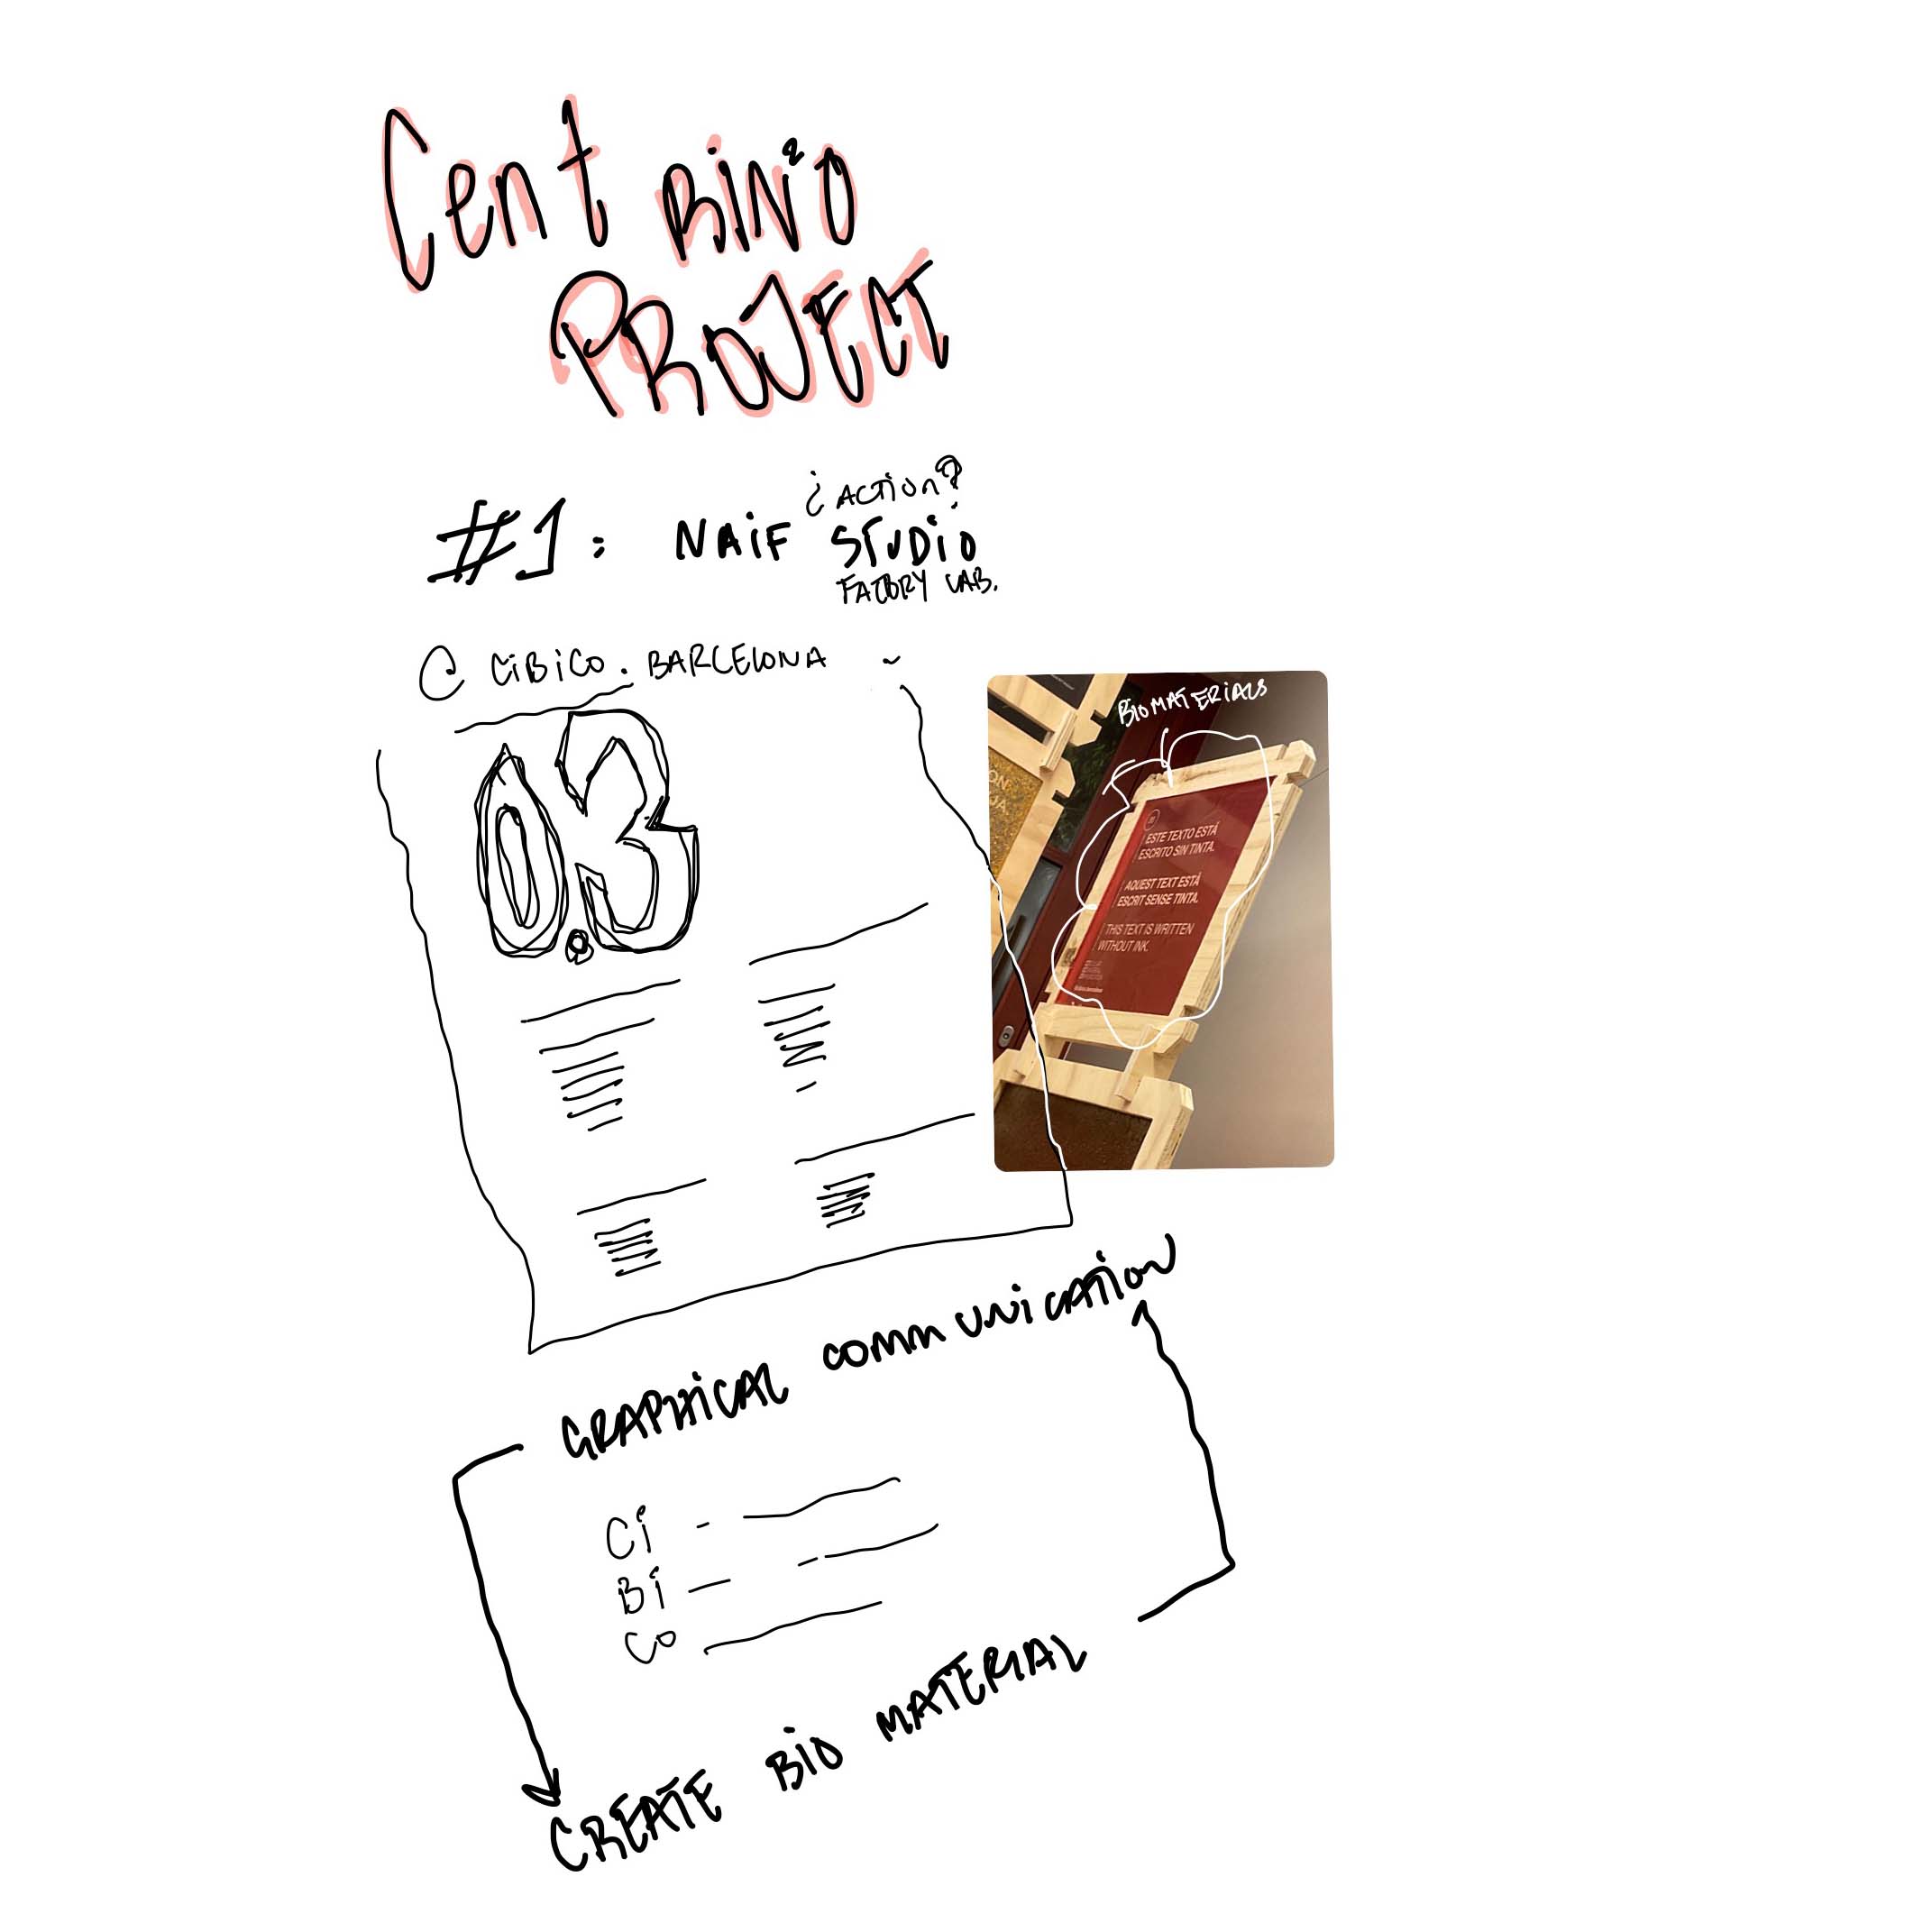 CentRiNO
PROJECT
¿ACTiON?
#1: NAiF STUDiO
FACTORY LAB.
@ CiBiCO. BARCELONA
BiOMATERiALS
0.3
ESTE TEXTO ESTÁ
ESCRITO SIN TINTA.
AQUEST TEXT ESTÀ
ESCRIT SENSE TINTA.
THIS TEXT IS WRITTEN
WITHOUT INK.
GRAPHiCAL COMMUNiCATiON
Ci -
Bi -
CO
CREATE BiO MATERIAL